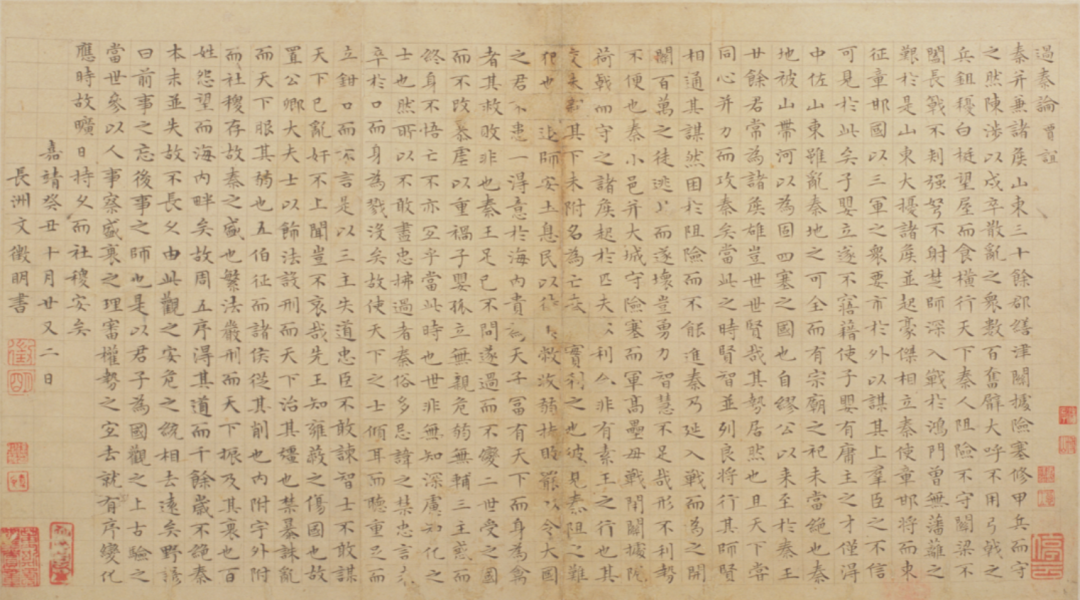 過秦論 賈誼
秦并兼諸矦山東三十餘郡繕津關據險塞修甲兵而守
之然陳涉以戍卒散亂之衆數百奮臂大呼不用弓戟之
兵鉏櫌白梃望屋而食橫行天下秦人阻險不守關梁不
闔長戟不刺强弩不射楚師深入戰於鴻門曾無藩蘺之
艱於是山東大擾諸矦並起豪傑相立秦使章邯將而東
征章邯國以三軍之衆要市於外以謀其上羣臣之不信
可見於此矣子嬰立遂不寤藉使子嬰有庸主之才僅得
中佐山東雖亂秦地之可全而有宗廟之祀未當絕也秦
地被山帶河以為固四塞之國也自繆公以來至於秦王
廿餘君常為諸矦雄豈世世賢哉其勢居然也且天下嘗
同心并力而攻秦矣當此之時賢智並列良將行其師賢
相通其謀然困於阻險而不能進秦乃延入戰而為之開
關百萬之徒逃而遂壞豈勇力智慧不足哉形不利勢
不便也秦小邑并大城守險塞而軍高壘毋戰閉關據阨
荷戟而守之諸矦起於匹夫以利非有素王之行也其
交未其下未附名為亡實利之也彼見秦阻之難
犯也退師安土息民以待收弱扶罷以令大國
之君不患一得意於海內貴為天子富有天下而身為禽
者其救敗非也秦王足已不問遂過而不變二世受之因
而不改暴虐以重禍子嬰孤立無親危弱無輔三主惑而
終身不悟亡不亦宜乎當此時也世非無知深慮知化之
士也然所以不敢盡忠拂過者秦俗多忌諱之禁忠言未
卒於口而身為戮沒矣故使天下之士傾耳而聽重足而
立鉗口而不言是以三主失道忠臣不敢諫智士不敢謀
天下已亂奸不上聞豈不哀哉先王知雍蔽之傷國也故
置公卿大夫士以飾法設刑而天下治其彊也禁暴誅亂
而天下服其弱也五伯征而諸侯從其削也內附字外附
而社稷存故秦之盛也繁法嚴刑而天下振及其衰也百
姓怨望而海內畔矣故周五序得其道而千餘歲不絕秦
本末並失故不長久由此觀之安危之統相去遠矣野諺
曰前事之忘後事之師也是以君子為國觀之上古驗之
當世參以人事察盛衰之理審權勢之宜去就有序變化
應時故曠日持久而社稷安矣
嘉靖癸丑十月廿又二日
長洲文徵明書